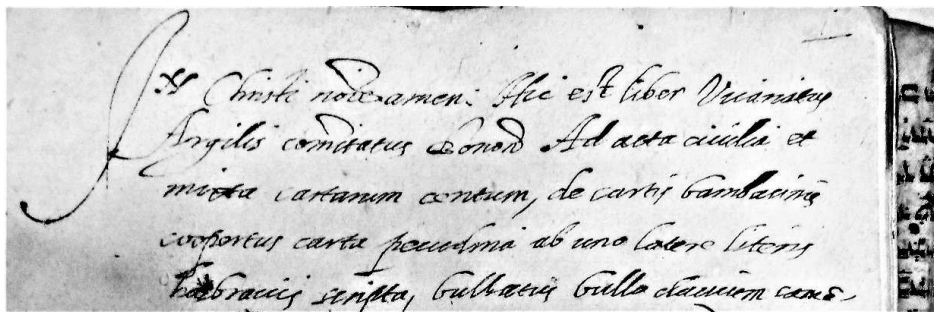 In Christi noīe amen: Hic est liber Vicariatus
Argilis comitatus Bonon Ad acta civilia et
mixta cartarum centum, de cartis bambacinis
coopertus carta pecudina ab uno latere literis
hebraicis scripta, bullatus bulla